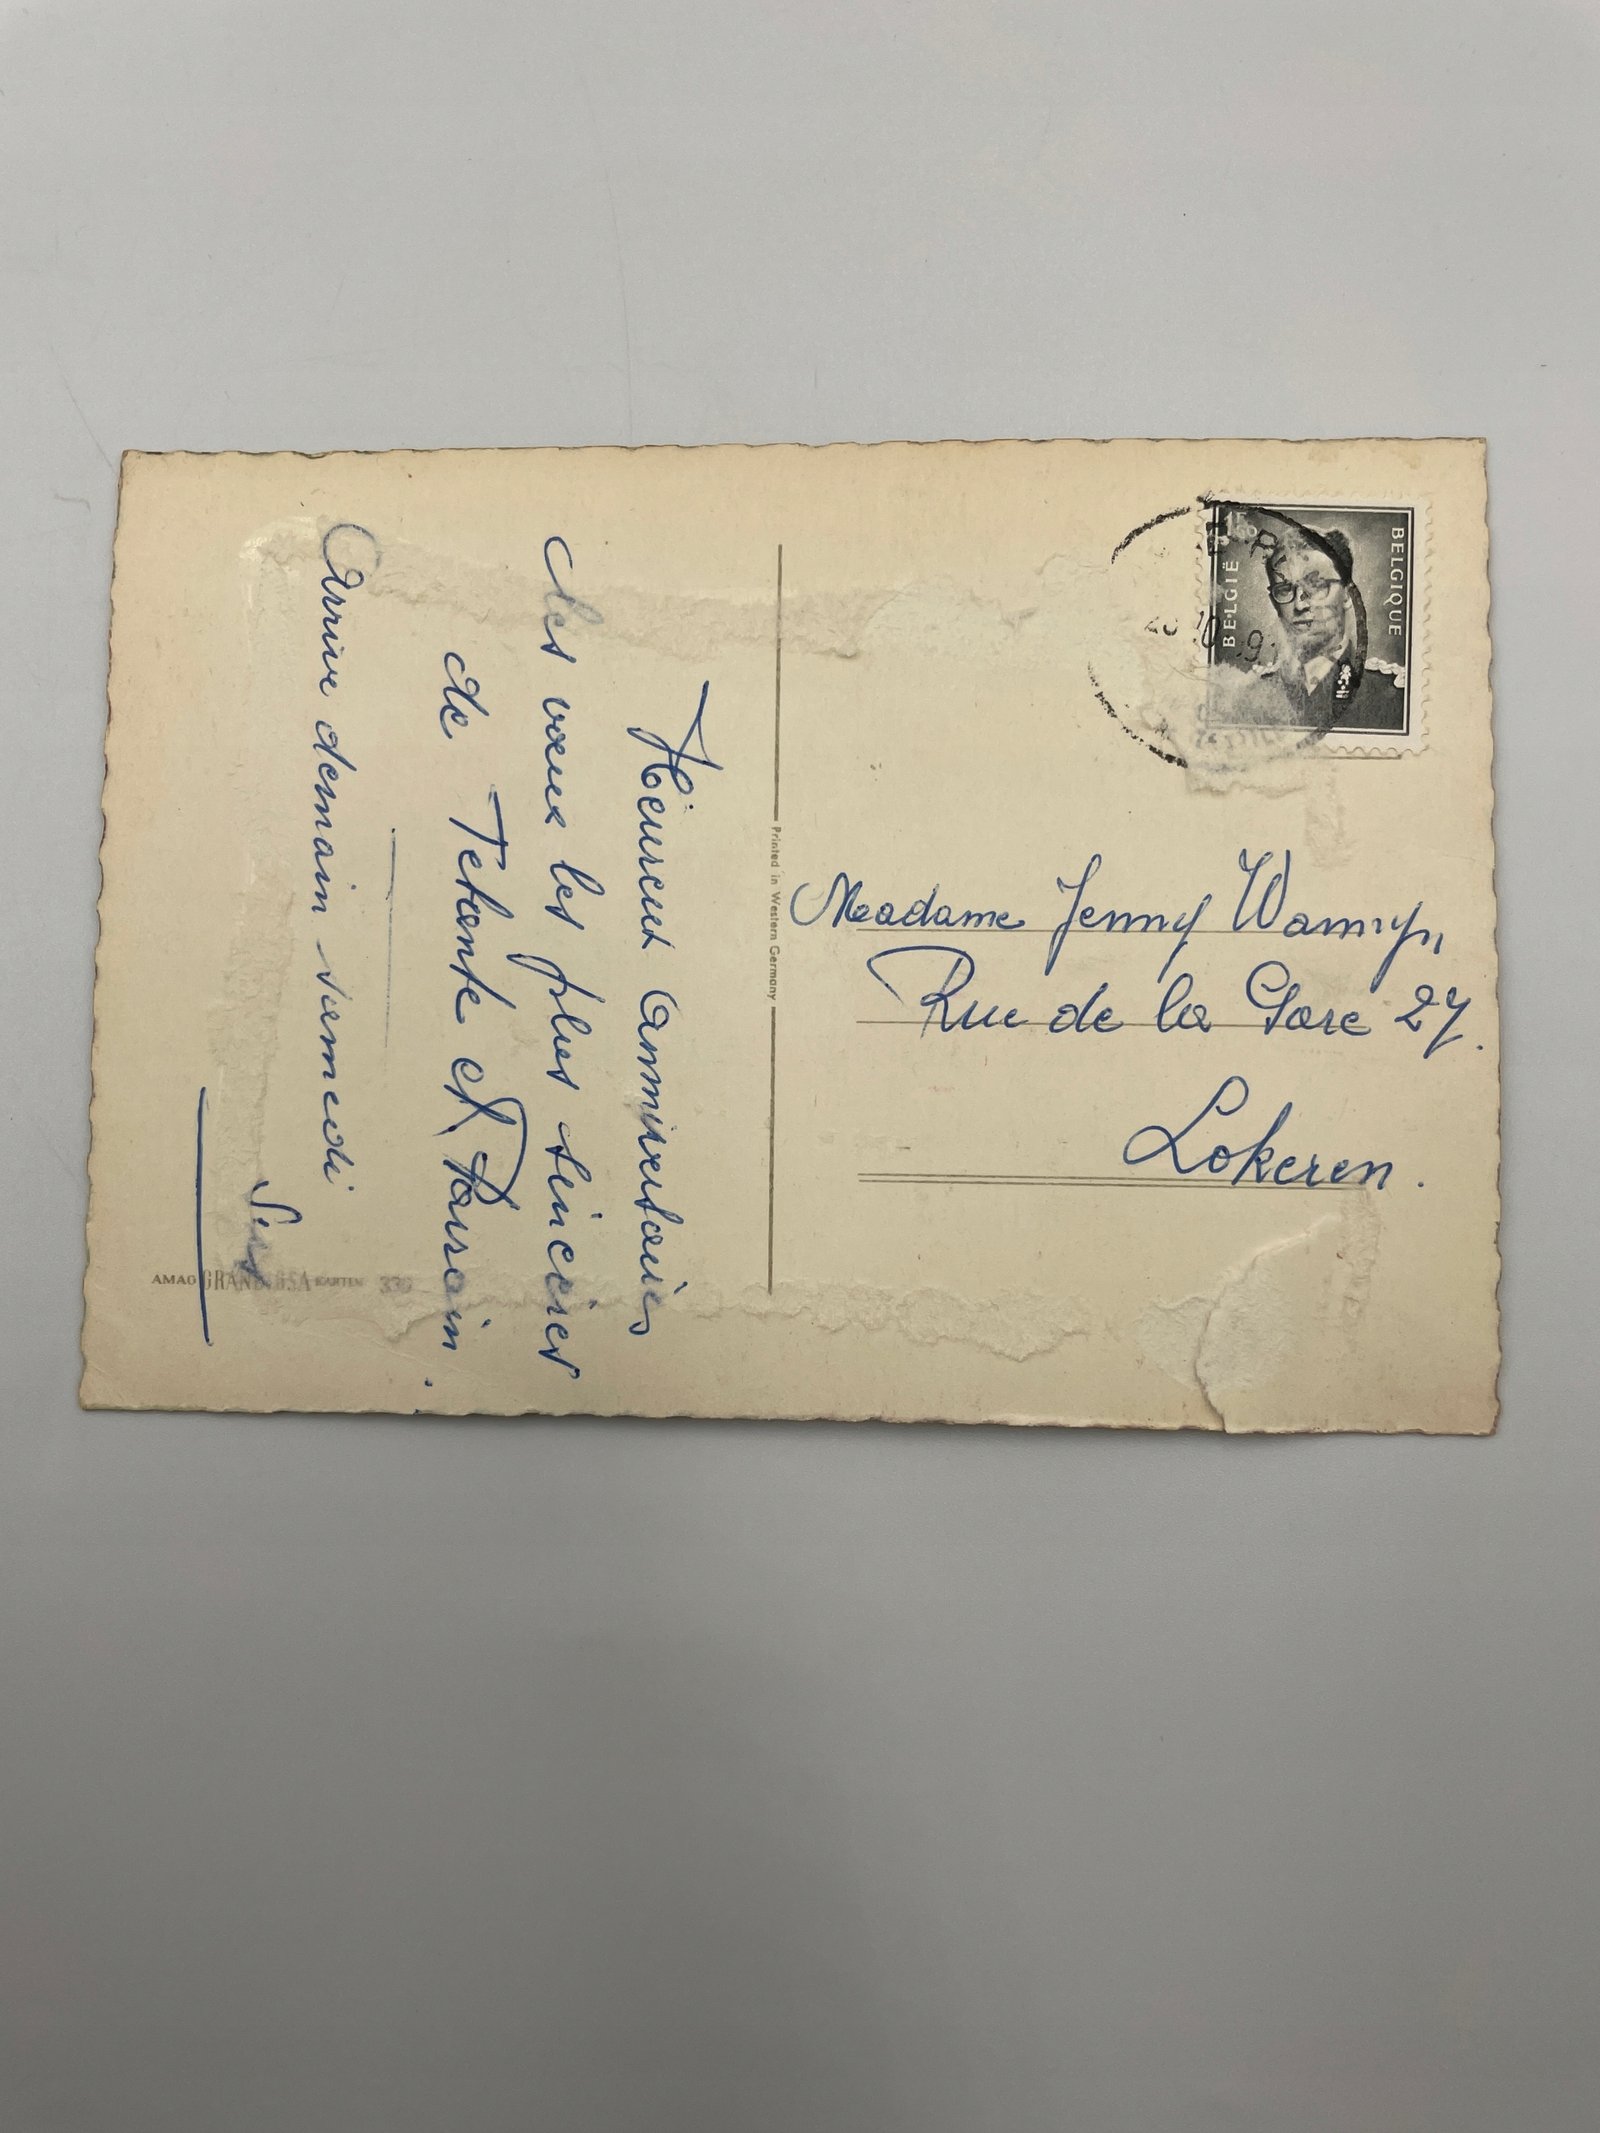 Heureux anniversaires
Les vœux les plus sincères
de Tetante et Parain.
Arrive demain samedi
BELGIQUE
BELGIË
Printed in Western Germany
Madame Jenny Wamyn
Rue de la Gare 27.
Lokeren.
AMAG KARTEN 339